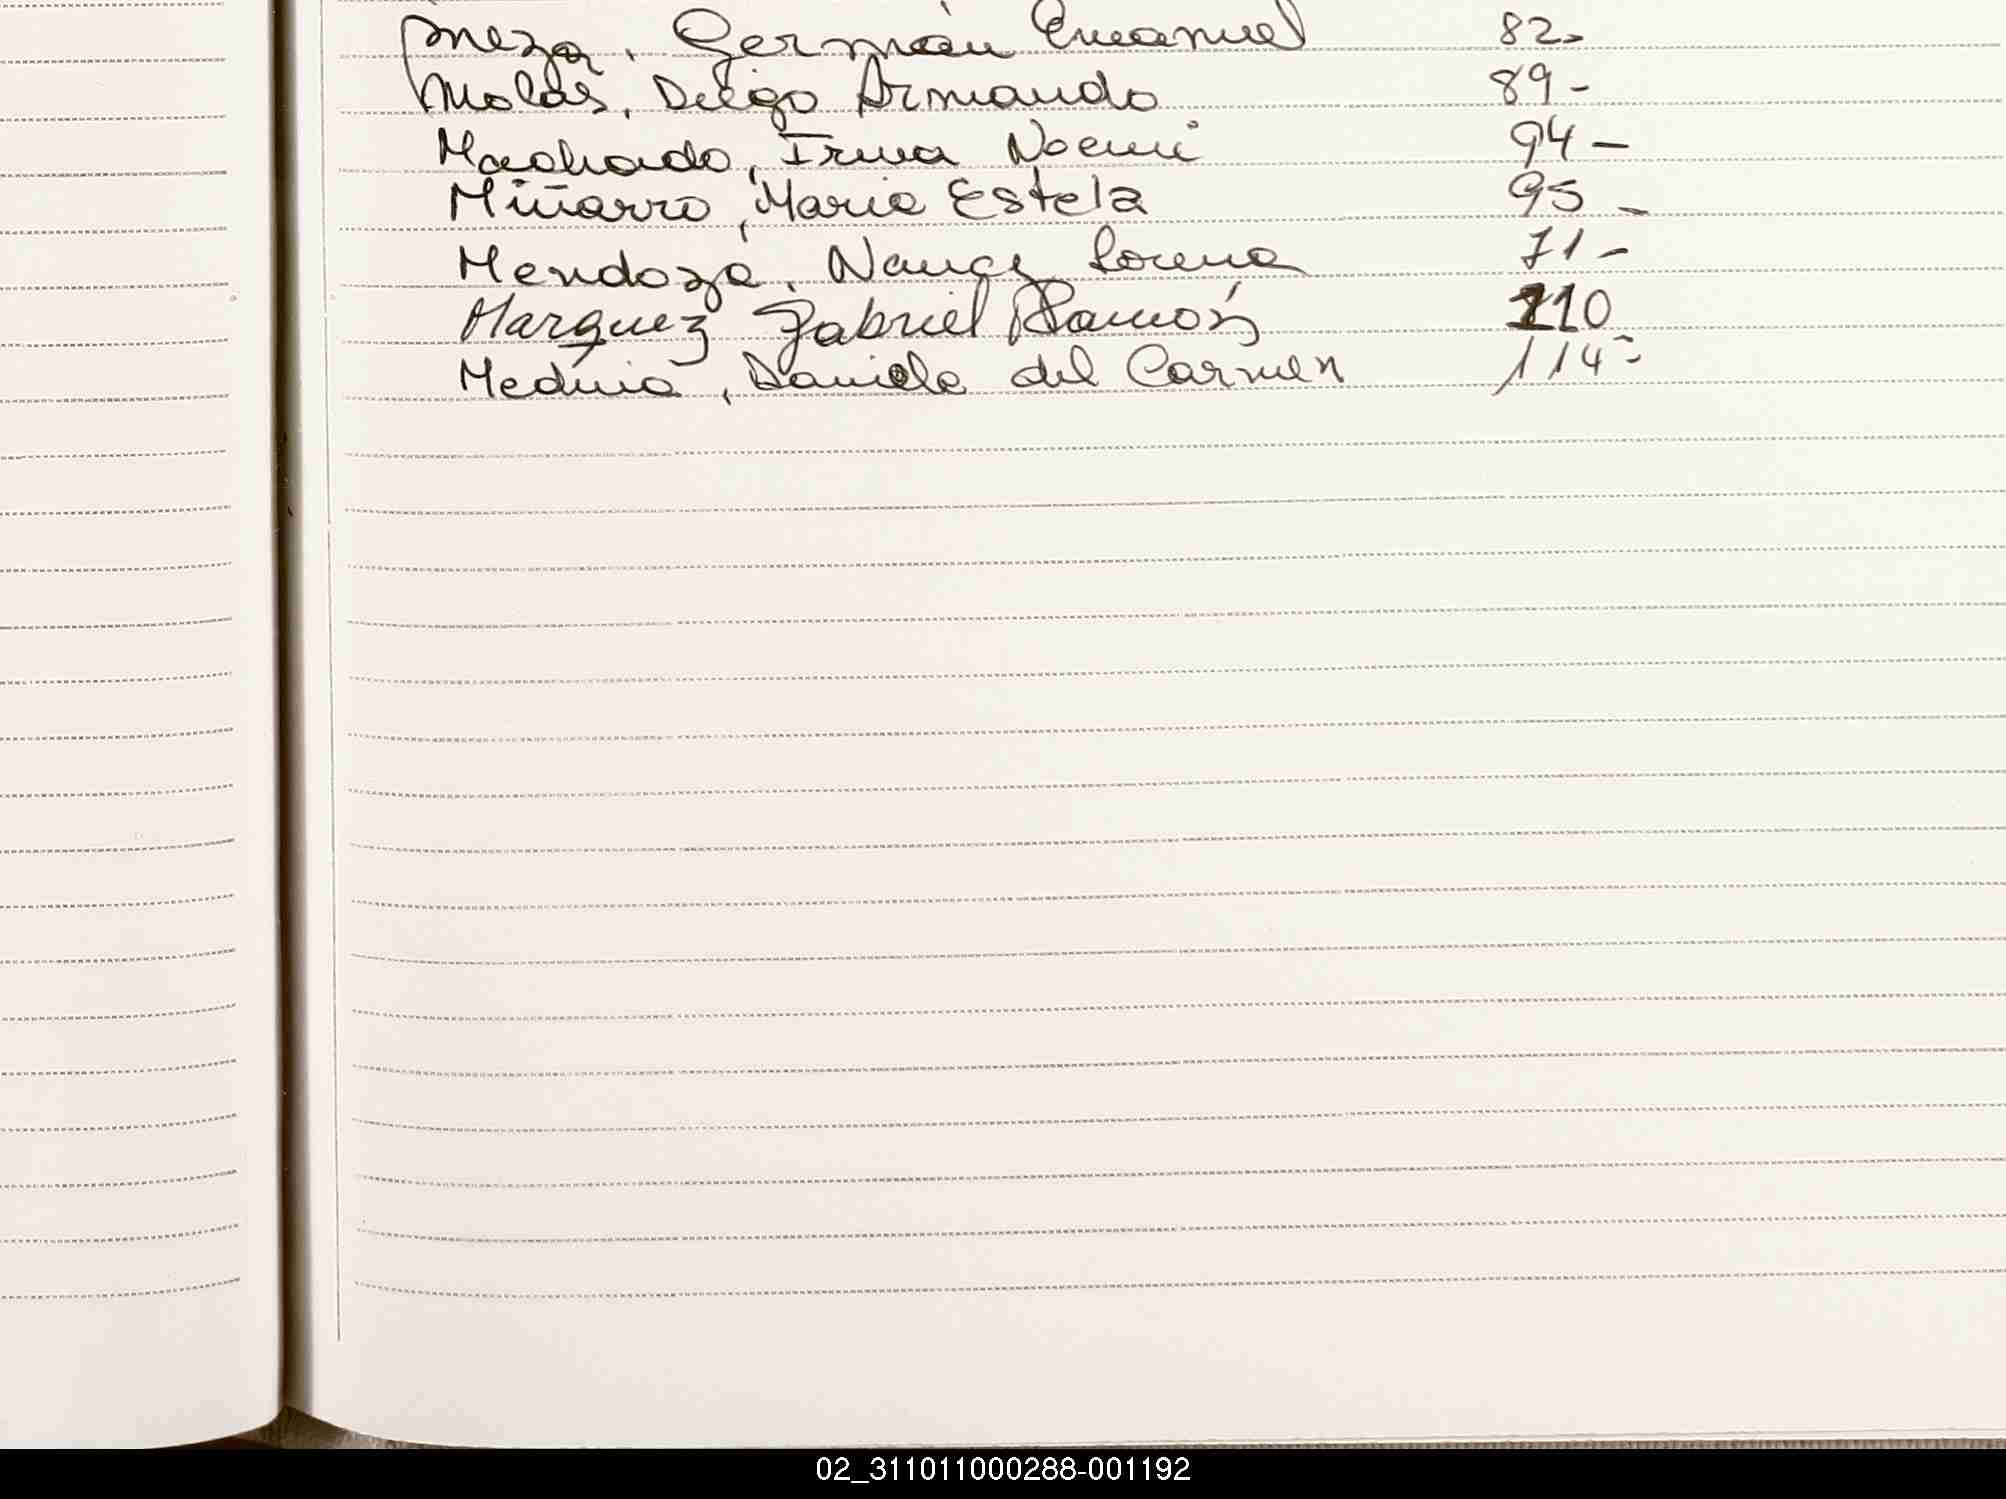 Meza, Germán Emanuel 82-
Molas, Diego Armando 89-
Machado, Irma Noemi 94-
Miñarro, Maria Estela 95-
Mendoza, Nancy Lorena 71-
Marquez Gabriel Ramón 110
Medina, Daniela del Carmen 114-
02_311011000288-001192